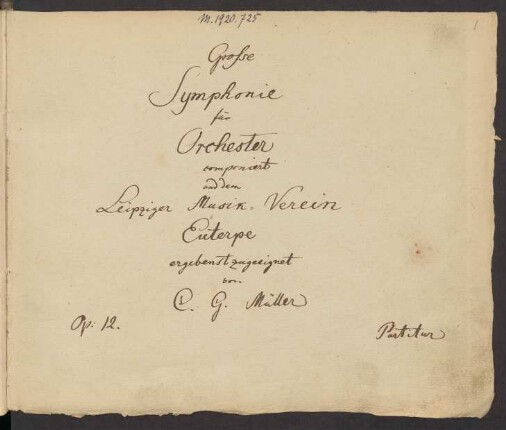 M.1920.725
1
Grosse
Symphonie
für
Orchester
componiert
und dem
Leipziger Musik-Verein
Euterpe
ergebenst zugeeignet
von
C. G. Müller
Op: 12.
Partitur